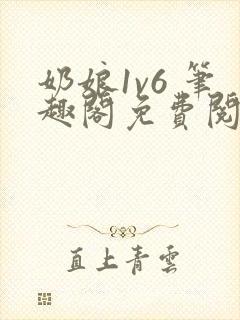 奶娘1v6 筆
趣閣免費閱
直上青雲